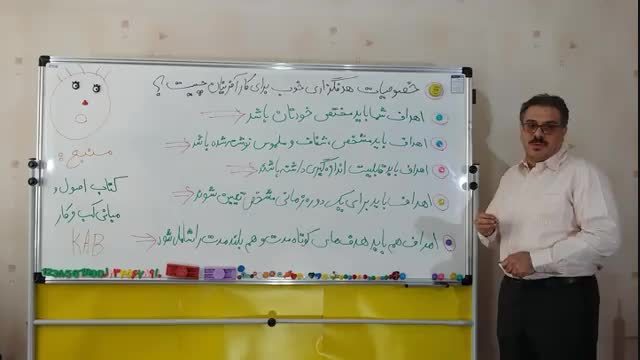 خصوصیات هدفگزاری خوب برای کارآفرینان چیست؟
اهداف شما باید مختص خودتان باشد
اهداف باید مشخص، شفاف و ملموس نوشته شده باشد
اهداف باید قابلیت اندازه‌گیری داشته باشد
اهداف باید برای یک دوره زمانی مشخص تعیین شوند
اهداف هم باید هدف‌های کوتاه مدت و هم بلند مدت را شامل شود
منبع:
کتاب اصول و
مبانی کسب و کار
KAB